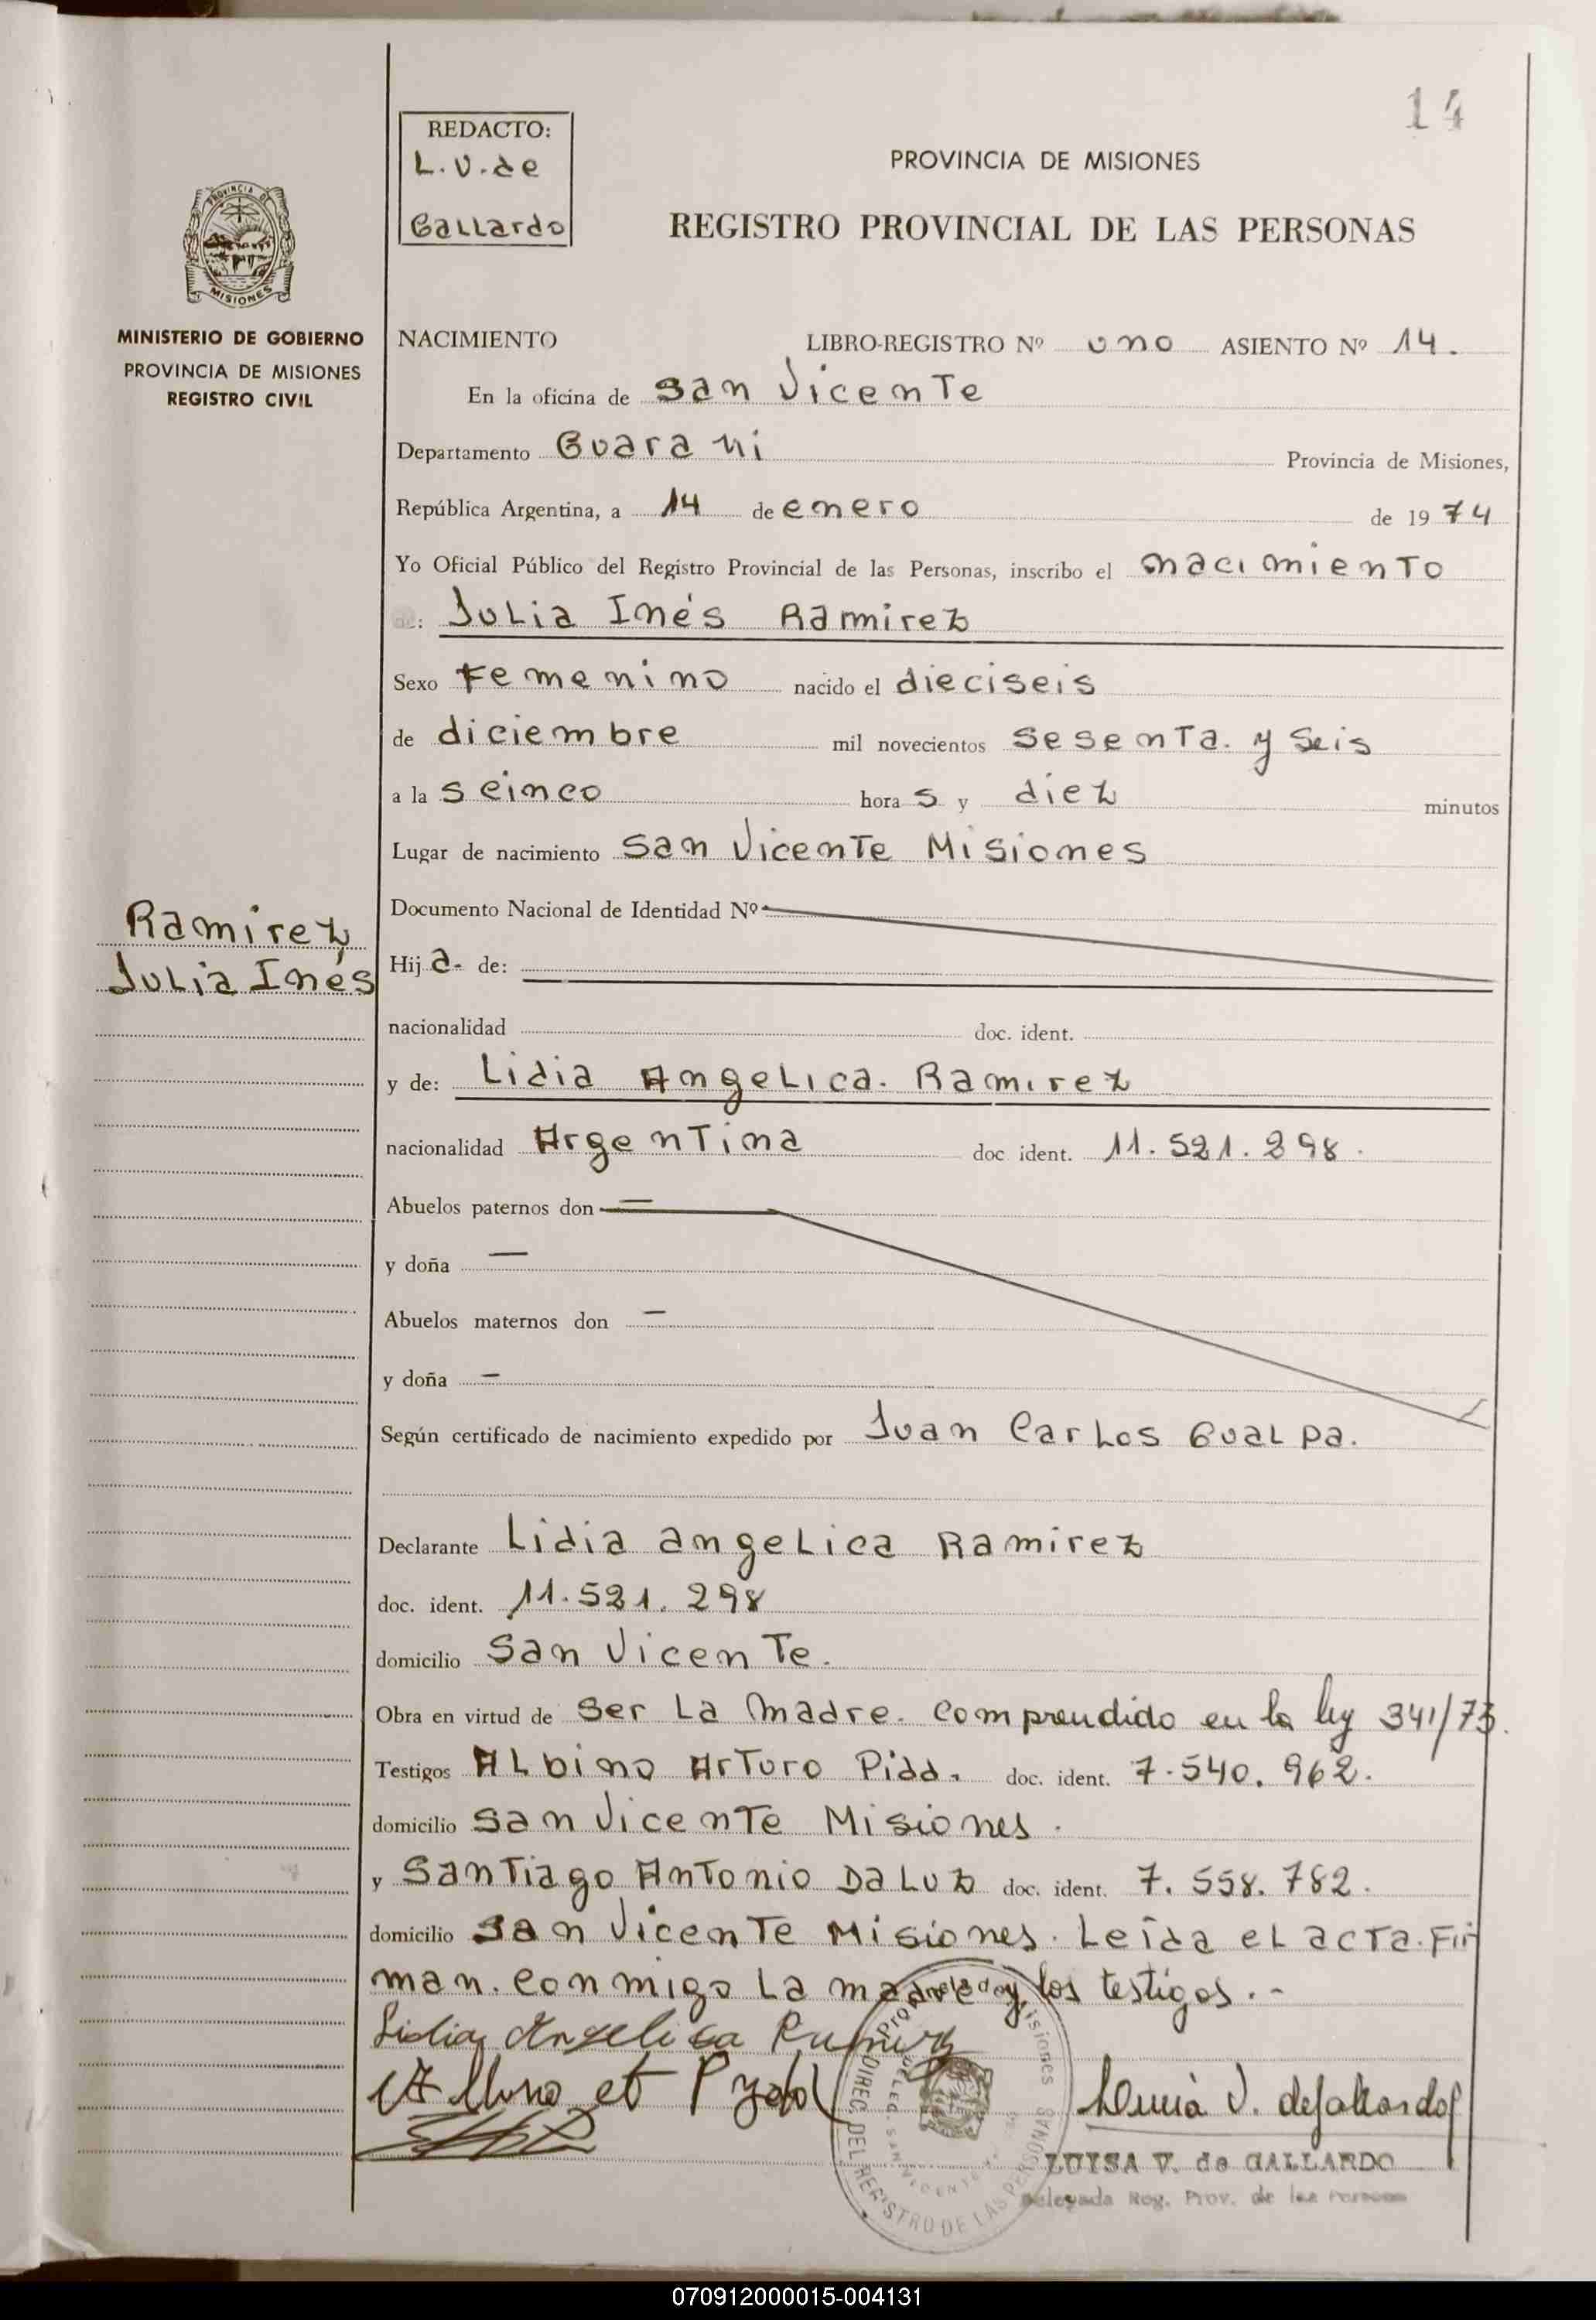 14
REDACTO:
L.V. de
Gallardo
PROVINCIA DE MISIONES
REGISTRO PROVINCIAL DE LAS PERSONAS
PROVINCIA DE
MISIONES
MINISTERIO DE GOBIERNO
PROVINCIA DE MISIONES
REGISTRO CIVIL
NACIMIENTO LIBRO-REGISTRO Nº uno ASIENTO Nº 14.
En la oficina de San Vicente
Departamento Guarani Provincia de Misiones,
República Argentina, a 14 de enero de 1974
Yo Oficial Público del Registro Provincial de las Personas, inscribo el nacimiento
de: Julia Inés Ramirez
Sexo Femenino nacido el dieciseis
de diciembre mil novecientos sesenta y seis
a la s cinco hora s y diez minutos
Lugar de nacimiento San Vicente Misiones
Documento Nacional de Identidad Nº
Ramirez
Julia Inés
Hij a- de:
nacionalidad doc. ident.
y de: Lidia Angelica. Ramirez
nacionalidad Argentina doc. ident. 11.521.298.
Abuelos paternos don —
y doña —
Abuelos maternos don —
y doña —
Según certificado de nacimiento expedido por Juan Carlos Gualpa.
Declarante Lidia angelica Ramirez
doc. ident. 11.521.298
domicilio San Vicente.
Obra en virtud de ser la madre. comprendido en la ley 341/73.
Testigos Albino Arturo Pidd. doc. ident. 7.540.962.
domicilio San Vicente Misiones.
y Santiago Antonio Da Luz doc. ident. 7.558.782.
domicilio San Vicente Misiones. Leída el acta. Fir
man. conmigo la madre y los testigos.-
Lidia Angelica Ramirez
DIREC. DEL REGISTRO DE LAS PERSONAS
LUISA V. de GALLARDO
Delegada Reg. Prov. de las Personas
070912000015-004131